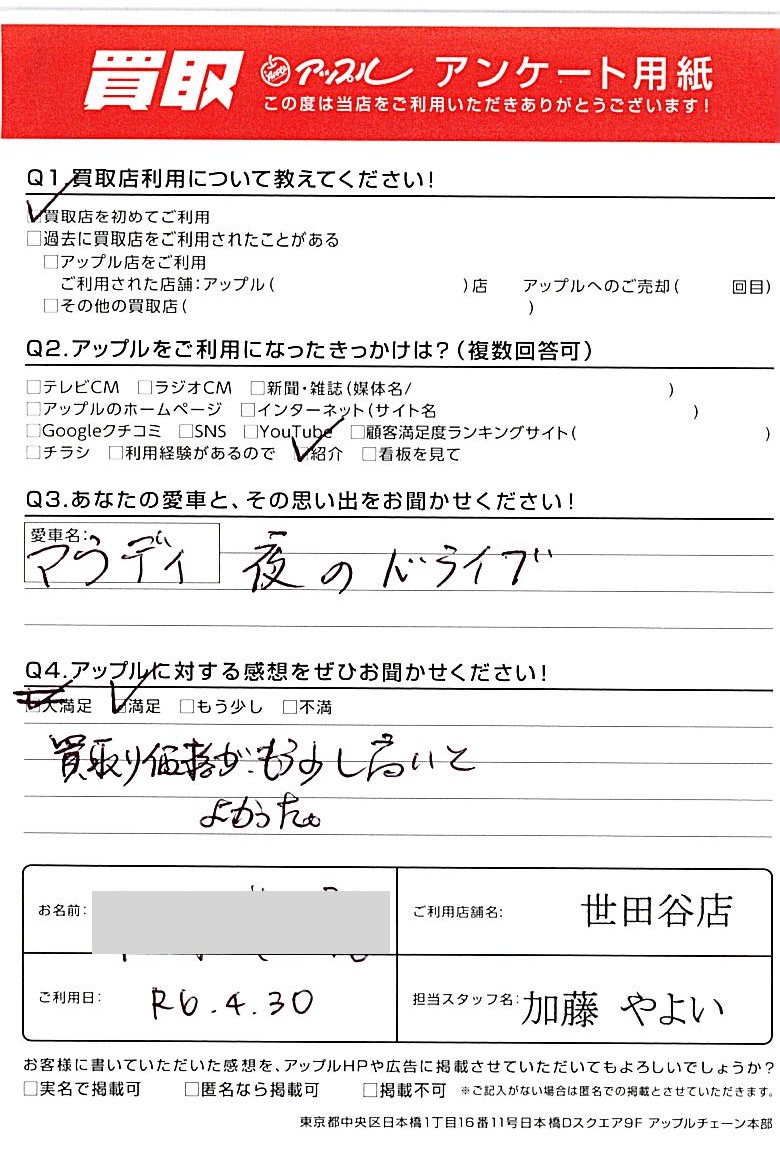 買取 アップル アンケート用紙
この度は当店をご利用いただきありがとうございます!
Q1.買取店利用について教えてください!
買取店を初めてご利用
□過去に買取店をご利用されたことがある
□アップル店をご利用
ご利用された店舗:アップル( )店 アップルへのご売却( 回目)
□その他の買取店( )
Q2.アップルをご利用になったきっかけは?(複数回答可)
□テレビCM □ラジオCM □新聞・雑誌(媒体名/ )
□アップルのホームページ □インターネット(サイト名 )
□Googleクチコミ □SNS □YouTube □顧客満足度ランキングサイト( )
□チラシ □利用経験があるので □紹介 □看板を見て
Q3.あなたの愛車と、その思い出をお聞かせください!
愛車名:
アウディ 夜のドライブ
Q4.アップルに対する感想をぜひお聞かせください!
□大満足 □満足 □もう少し □不満
買取り価格がもう少し高いと
よかった。
お名前: ご利用店舗名: 世田谷店
ご利用日: R6.4.30 担当スタッフ名: 加藤 やよい
お客様に書いていただいた感想を、アップルHPや広告に掲載させていただいてもよろしいでしょうか?
□実名で掲載可 □匿名なら掲載可 □掲載不可 ※ご記入がない場合は匿名での掲載とさせていただきます。
東京都中央区日本橋1丁目16番11号日本橋Dスクエア9F アップルチェーン本部